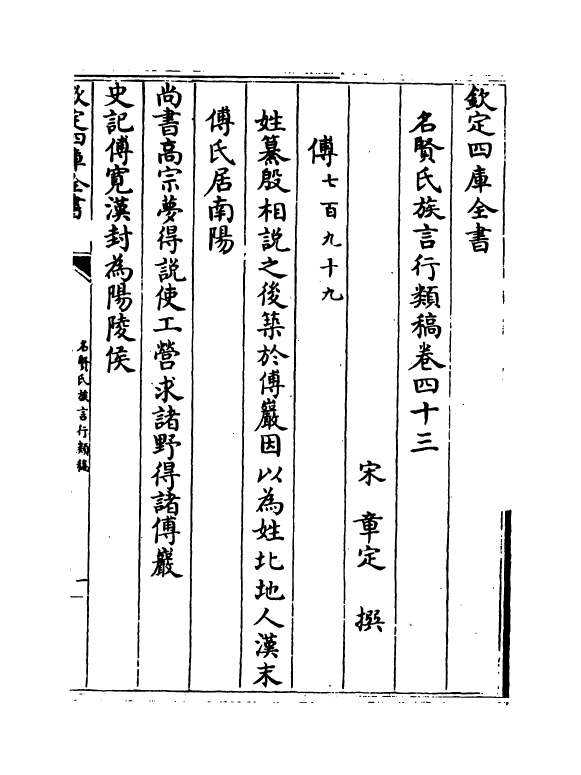 欽定四庫全書
名賢氏族言行類稿卷四十三
宋 章定 撰
傅 七百九十九
姓纂殷相說之後築於傅巖因以為姓北地人漢末
傅氏居南陽
尚書高宗夢得說使工營求諸野得諸傅巖
史記傅寛漢封為陽陵侯
欽定四庫全書
名賢氏族言行類稿
一